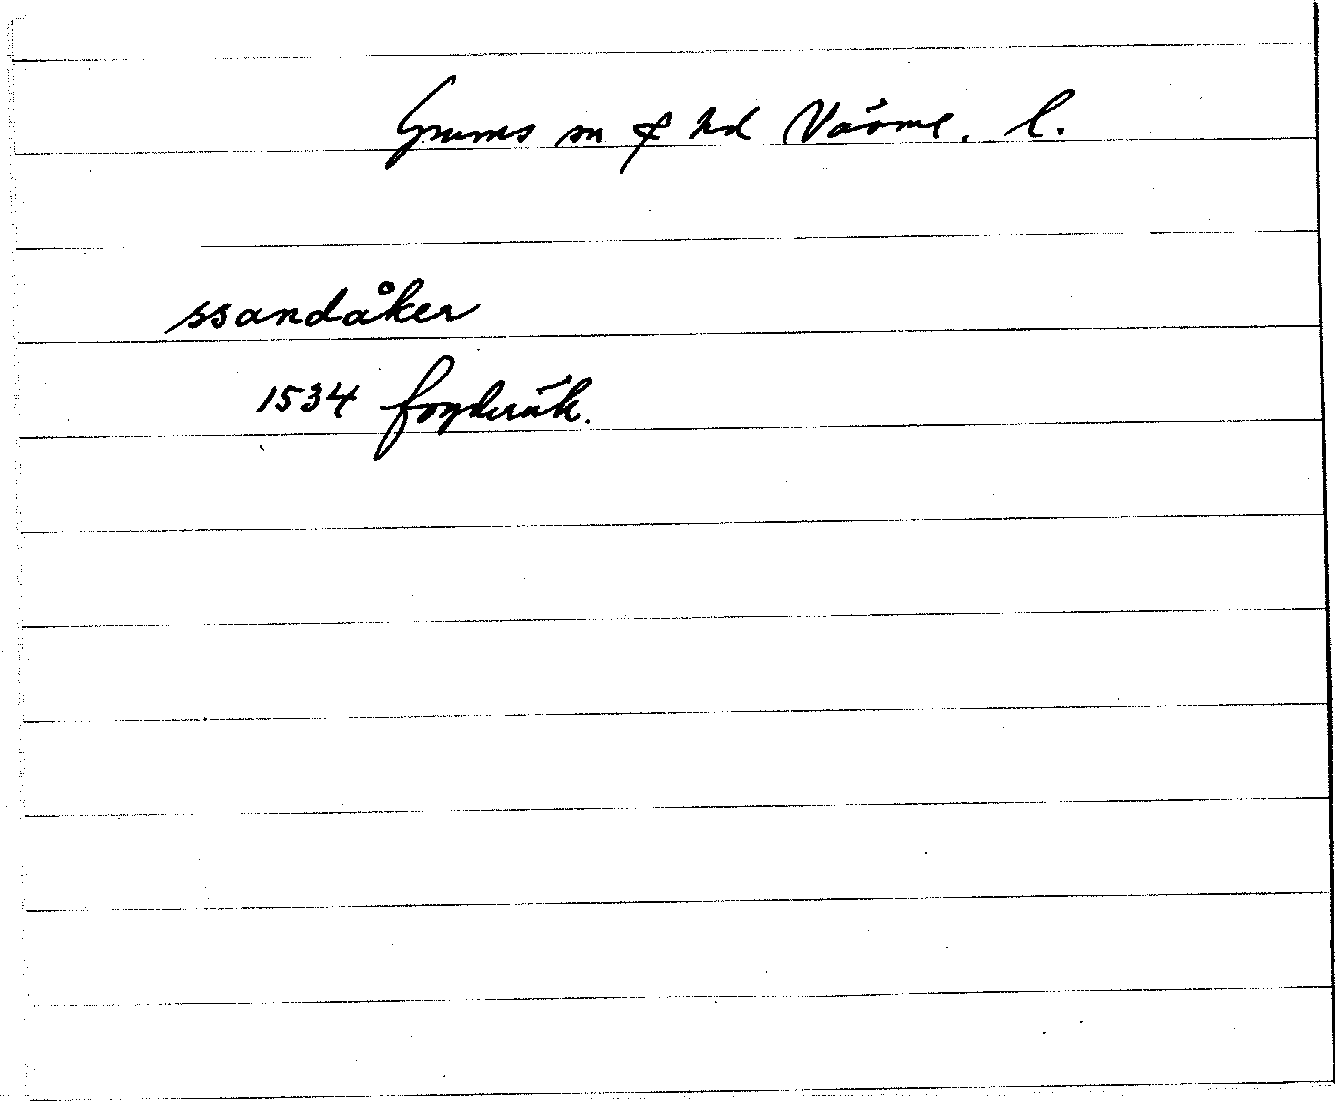 Grums sn & hd Värml. l.
ssandåker
1534 fogderäk.